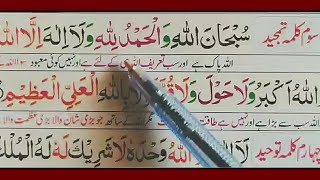 سوم کلمہ تمجید سُبْحَانَ اللّٰهِ وَالْحَمْدُ لِلّٰهِ وَلَا اِلٰهَ اِلَّا اللّٰهُ
اللہ پاک ہے اور سب تعریف اللہ ہی کے لئے ہے اور نہیں کوئی معبود سوا اللہ کے
وَاللّٰهُ اَكْبَرُ وَلَا حَوْلَ وَلَا قُوَّةَ اِلَّا بِاللّٰهِ الْعَلِيِّ الْعَظِيْمِ
اللہ سب سے بڑا ہے اور نہیں ہے طاقت مگر ساتھ جو بڑی شان والا بڑی عظمت والا
چہارم کلمہ توحید لَا اِلٰهَ اِلَّا اللّٰهُ وَحْدَهٗ لَا شَرِيْكَ لَهٗ لَهُ الْمُلْكُ